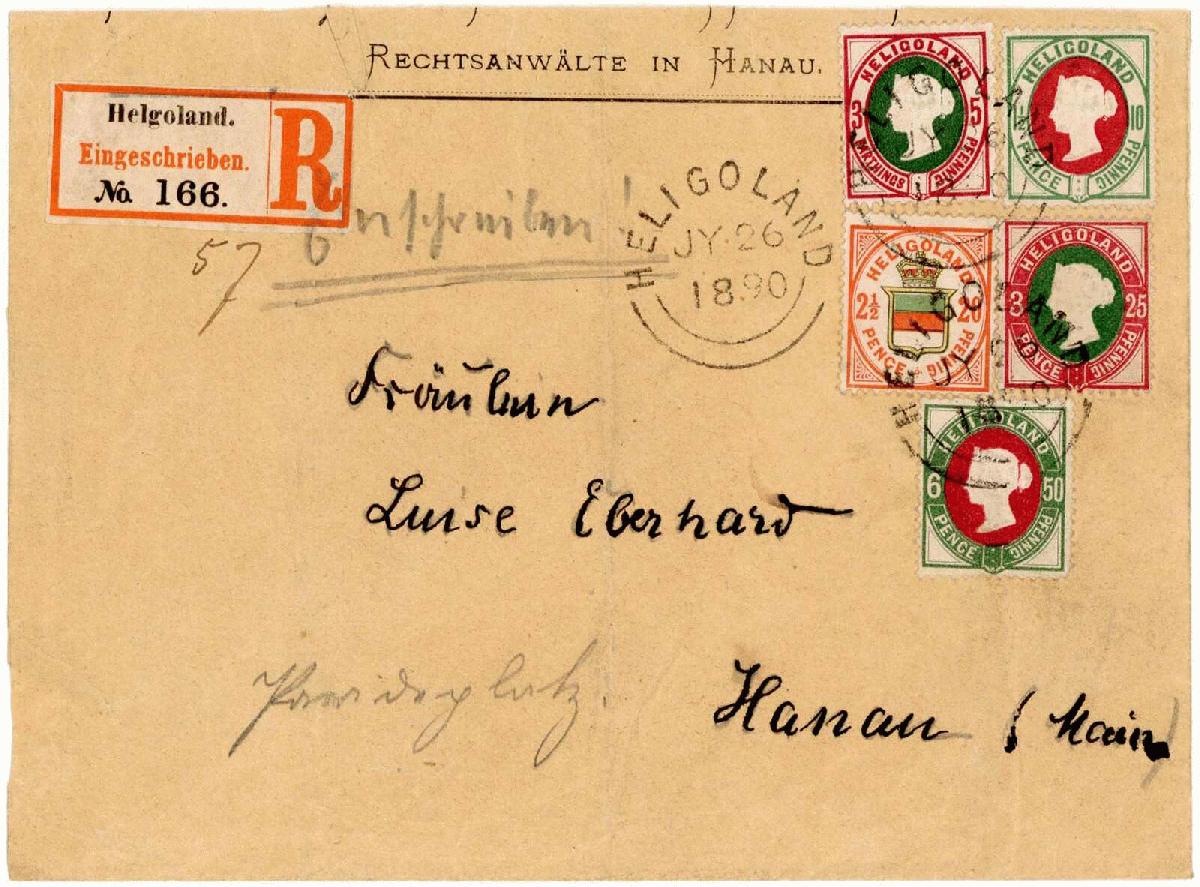 RECHTSANWÄLTE IN HANAU.
Helgoland.
Eingeschrieben.
No. 166.
R
57
Einschreiben!
HELIGOLAND
JY·26
1890
HELIGOLAND
3 5
FARTHINGS PFENNIG
HELIGOLAND
10
PENCE PFENNIG
HELIGOLAND
2½ 20
PENCE PFENNIG
HELIGOLAND
3 25
PENCE PFENNIG
HELIGOLAND
6 50
PENCE PFENNIG
HELIGOLAND
JY
HELIGOLAND
JY
Fräulein
Luise Eberhard
Paradeplatz.
Hanau (Main)